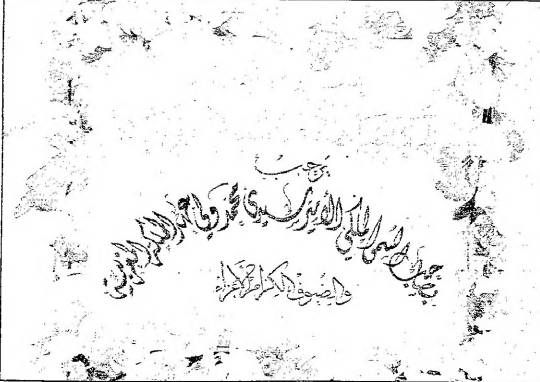 يرحب
بصاحب السمو الملكي الأمير سيدي محمد ولي عهد المملكة المغربية
والضيوف الكرام الأعزاء